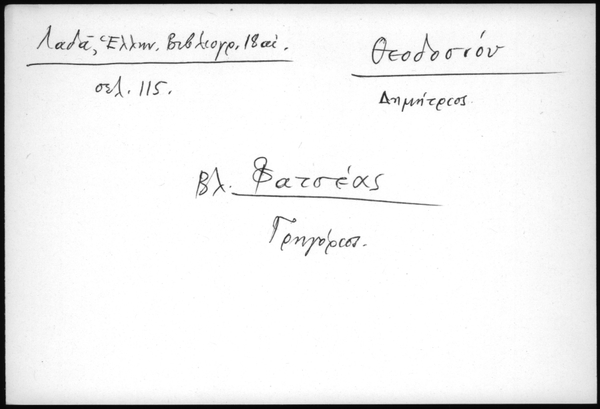 Λαδᾶ, Ἑλλην. Βιβλιογρ. 18 αἰ.
σελ. 115.
Θεοδοσίου
Δημήτριος.
Βλ. Φατσέας
Γρηγόριος.